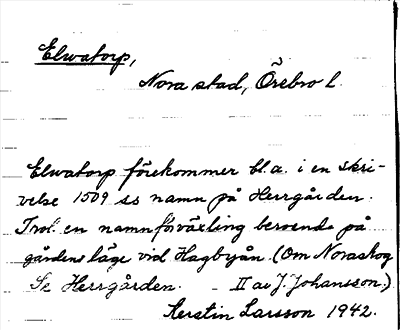 Elwatorp,
Nora stad, Örebro l.
Elwatorp förekommer bl.a. i en skri-
velse 1509 ss namn på Herrgården.
Trol. en namnförväxling beroende på
gårdens läge vid Hagbyån. (Om Noraskog
Se Herrgården. - II av J. Johansson.)
Kerstin Larsson 1942.